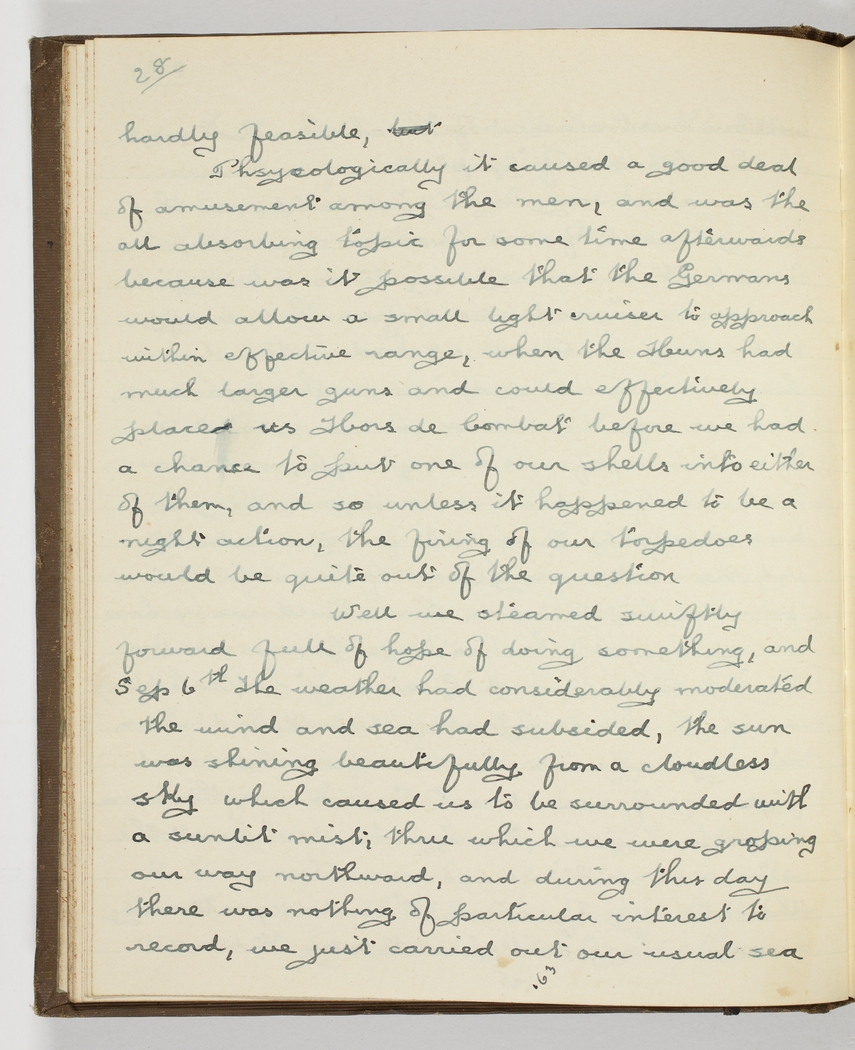 28/
hardly feasible, but
Phsycologically it caused a good deal
of amusement among the men, and was the
all absorbing topic for some time afterwards
because was it possible that the Germans
would allow a small light cruiser to approach
within effective range, when the Huns had
much larger guns and could effectively
placed us Hors de Combat before we had
a chance to put one of our shells into either
of them, and so unless it happened to be a
night action, the firing of our torpedoes
would be quite out of the question
Well we steamed swiftly
forward full of hope of doing something, and
Sep 6th The weather had considerably moderated
the wind and sea had subsided, the sun
was shining beautifully from a cloudless
sky which caused us to be surrounded with
a sunlit mist, thru which we were groping
our way northward, and during this day
there was nothing of particular interest to
record, we just carried out our usual sea
.63